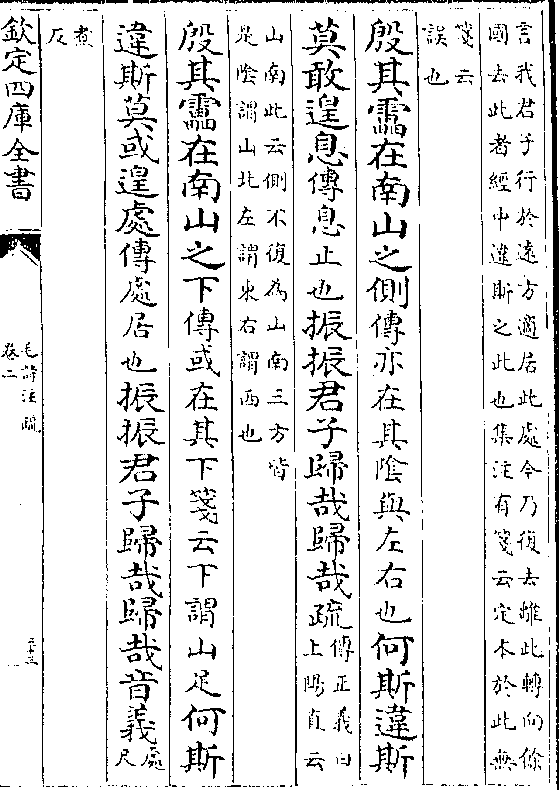 言我君子行於遠方適居此處今乃復去離此轉向餘
國去此者經中違斯之此也集注有箋云定本於此無
箋云
誤也
殷其靁在南山之側傳亦在其陰與左右也何斯違斯
莫敢遑息傳息止也振振君子歸哉歸哉疏傳正義曰
上陽直云
山南此云側不復為山南三方皆
是陰謂山北左謂東右謂西也
殷其靁在南山之下傳或在其下箋云下謂山足何斯
違斯莫或遑處傳處居也振振君子歸哉歸哉音義處
尺
煮
反
欽定四庫全書
毛詩注疏
卷二
三十三